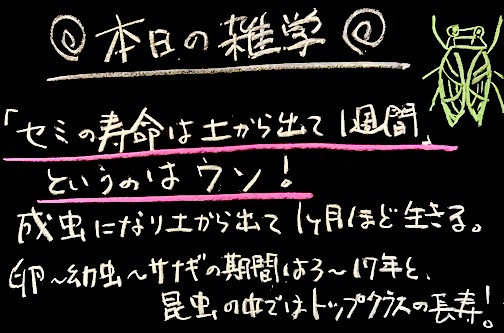 ◎ 本日の雑学 ◎
「セミの寿命は土から出て1週間」
というのはウソ!
成虫になり土から出て1ヶ月ほど生きる。
卵~幼虫~サナギの期間は3~17年と、
昆虫の中ではトップクラスの長寿!